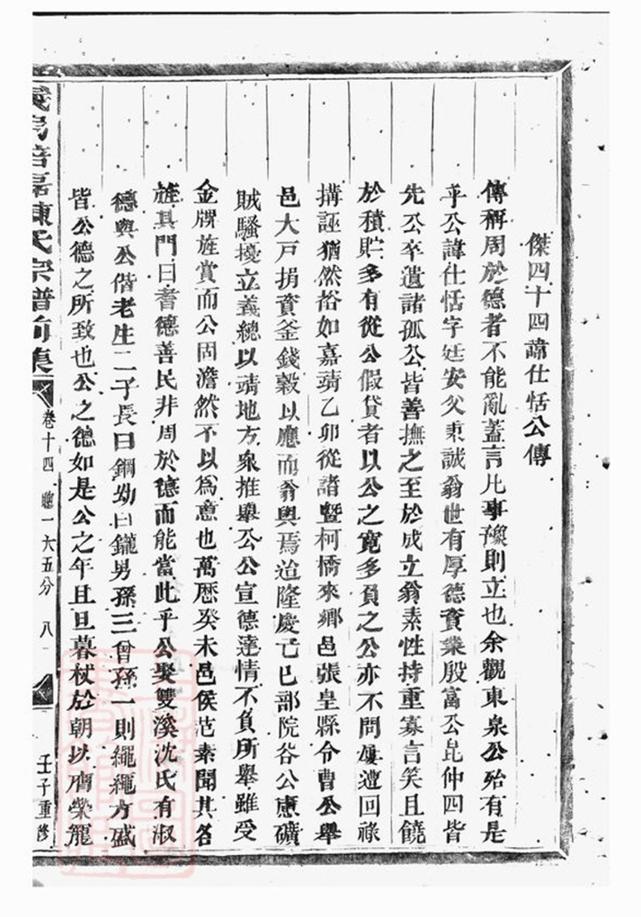 傑四十四諱仕恬公傳
傳稱周於德者不能亂蓋言凡事豫則立也余觀東泉公殆有是
乎公諱仕恬字廷安父秉誠翁世有厚德資業殷富公昆仲四皆
先公卒遺諸孤公皆善撫之至於成立翁素性持重寡言笑且饒
於積貯多有從公假貸者以公之寬多負之公亦不問屢遭回祿
搆誣猶然裕如嘉靖乙卯從諸暨柯橋來鄉邑張皇縣令曹公舉
邑大戶捐資釜錢穀以應而翁與焉迨隆慶己巳部院谷公憲礦
賊騷擾立義總以靖地方衆推舉公公宣德達情不負所舉雖受
金牌旌賞而公固澹然不以為意也萬曆癸未邑侯范素聞其名
旌其門曰耆德善民非周於德而能當此乎公娶雙溪沈氏有淑
德與公偕老生二子長曰鋼幼曰鑨男孫三曾孫一則繩繩方盛
皆公德之所致也公之德如是公之年且旦暮杖於朝以膺榮寵
陳氏宗譜前集
卷十四
一六五分
八
壬子重修